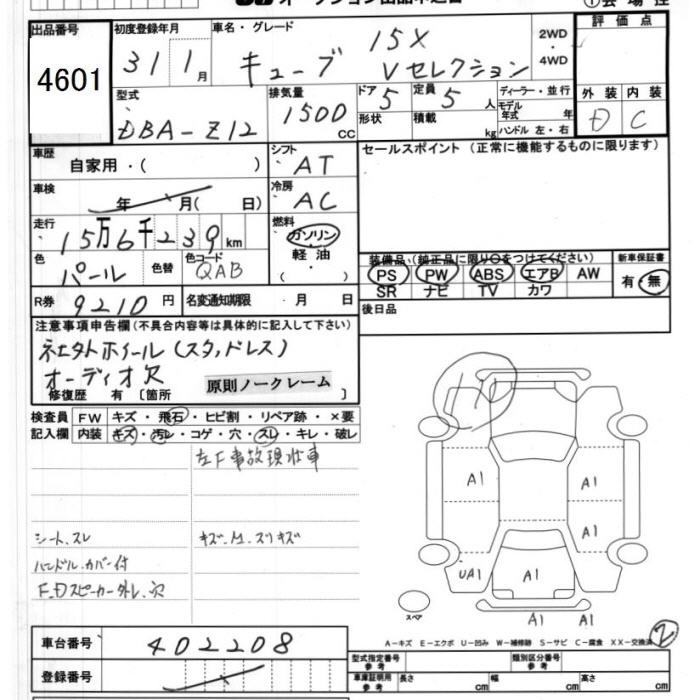 出品番号 初度登録年月 車名・グレード 評価点
4601 31 1月 キューブ 15X Vセレクション 2WD・4WD
外装 内装
D C
型式 DBA-Z12 排気量 1500 CC ドア 5 定員 5 人 ディーラー・並行
形状 積載 kg モデル年式 年
ハンドル 左・右
車歴 自家用・( ) シフト AT セールスポイント (正常に機能するものに限ります)
車検 年 月( 日) 冷房 AC
走行 15万6千239km 燃料 ガソリン 軽油 ( ・ )
色 パール 色替 色コード QAB
装備品(純正品に限り○をつけてください) 新車保証書
PS PW ABS エアB AW 有・無
SR ナビ TV カワ
R券 9210円 名変通知期限 ・ 月 日 後日品
注意事項申告欄(不具合内容等は具体的に記入して下さい)
社外ホイール(スタッドレス)
オーディオ穴
修復歴 有 〔箇所 原則ノークレーム 〕
検査員 FW キズ・飛石・ヒビ割・リペア跡・×要
記入欄 内装 キズ・汚レ・コゲ・穴・スレ・キレ・破レ
左F事故現状車
シート.スレ キズ.M.スリキズ
ハンドル.カバー付
F.Dスピーカー外し.穴
A1
A1
A1
UA1 A1
A1 A1
スペア
2
A-キズ E-エクボ U-凹み W-補修跡 S-サビ C-腐食 XX-交換済
車台番号 402208
登録番号
型式指定番号 参考 類別区分番号 参考
車庫証明用 参考 長さ cm 幅 cm 高さ cm